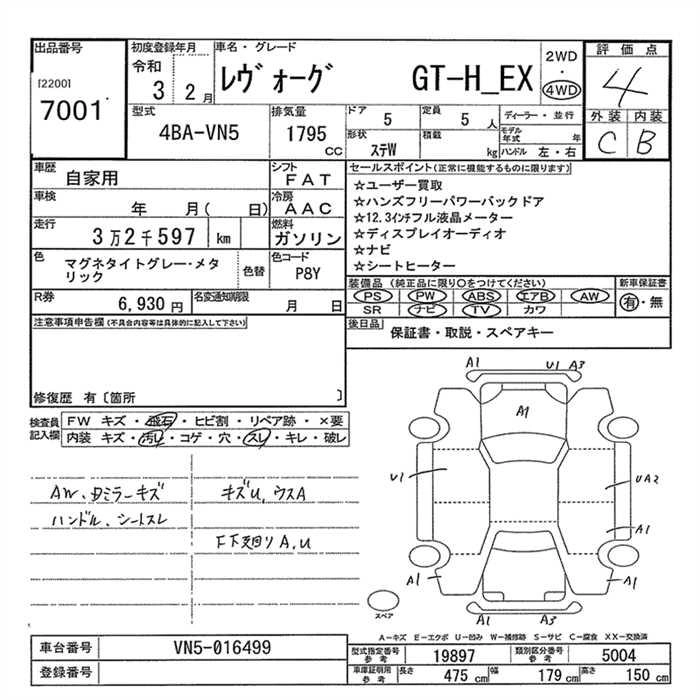 出品番号
[2200]
7001
初度登録年月
令和
3 2月
車名・グレード
レヴォーグ GT-H_EX
2WD
・
4WD
評価点
4
外装 内装
C B
型式
4BA-VN5
排気量
1795
CC
ドア
5
定員
5 人
形状
ステW
積載
kg
ディーラー・並行
モデル年式 年
ハンドル 左・右
車歴
自家用
シフト
FAT
車検
年 月( 日)
冷房
AAC
走行
3万2千597 km
燃料
ガソリン
色
マグネタイトグレー・メタリック
色替
色コード
P8Y
R券
6,930 円
名変通知期限
月 日
セールスポイント(正常に機能するものに限ります)
☆ユーザー買取
☆ハンズフリーパワーバックドア
☆12.3インチフル液晶メーター
☆ディスプレイオーディオ
☆ナビ
☆シートヒーター
装備品 (純正品に限り○をつけてください)
PS PW ABS エアB AW
SR ナビ TV カワ
新車保証書
有・無
後日品
保証書・取説・スペアキー
注意事項申告欄(不具合内容等は具体的に記入して下さい)
修復歴 有〔箇所 〕
検査員記入欄
FW キズ・飛石・ヒビ割・リペア跡・×要
内装 キズ・汚レ・コゲ・穴・スレ・キレ・破レ
AW、ドアミラーキズ
ハンドル、シートスレ
キズU、ウスA
F下廻りA,U
A1 U1 A3
A1
U1
UA2
A1
A1
A1
A1 A3
スペア
A-キズ E-エクボ U-凹み W-補修跡 S-サビ C-腐食 XX-交換済
車台番号
VN5-016499
登録番号
型式指定番号参考
19897
類別区分番号参考
5004
車庫証明用参考
長さ 475 cm 幅 179 cm 高さ 150 cm